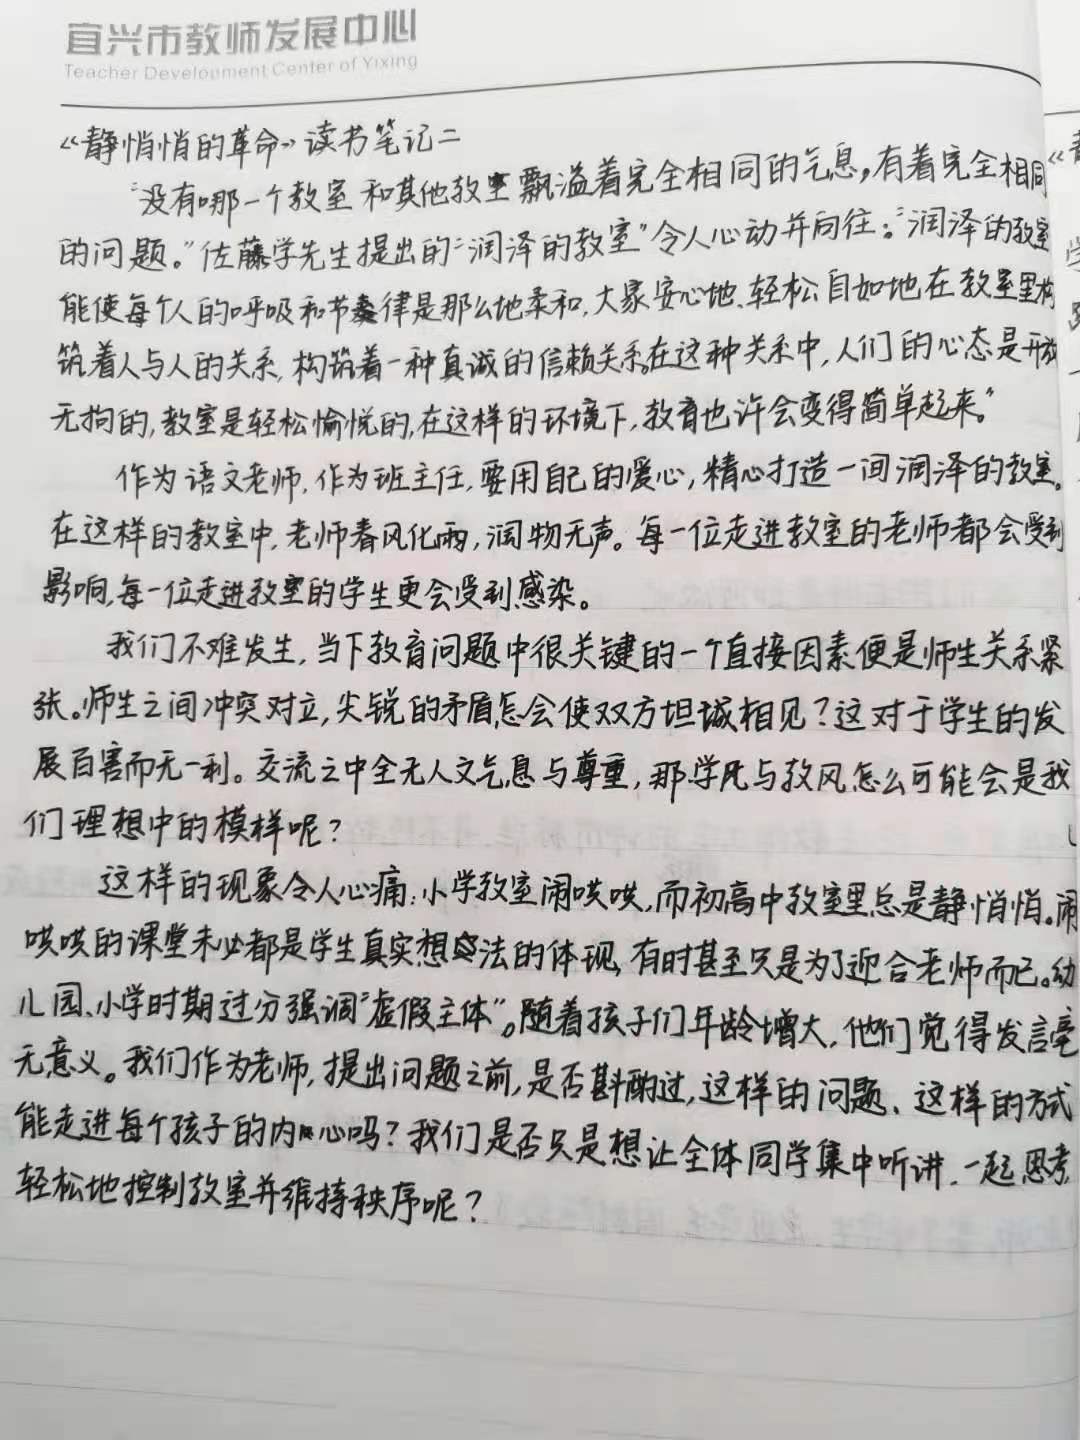 宜兴市教师发展中心
Teacher Development Center of Yixing
《静悄悄的革命》读书笔记二
“没有哪一个教室和其他教室飘溢着完全相同的气息,有着完全相同
的问题。”佐藤学先生提出的“润泽的教室”令人心动并向往:“润泽的教室
能使每个人的呼吸和节奏律是那么地柔和,大家安心地、轻松自如地在教室里构
筑着人与人的关系,构筑着一种真诚的信赖关系。在这种关系中,人们的心态是开放
无拘的,教室是轻松愉悦的,在这样的环境下,教育也许会变得简单起来。”
作为语文老师,作为班主任,要用自己的爱心,精心打造一间润泽的教室。
在这样的教室中,老师春风化雨,润物无声。每一位走进教室的老师都会受到
影响,每一位走进教室的学生更会受到感染。
我们不难发生,当下教育问题中很关键的一个直接因素便是师生关系紧
张。师生之间冲突对立,尖锐的矛盾怎会使双方坦诚相见?这对于学生的发
展百害而无一利。交流之中全无人文气息与尊重,那学风与教风怎么可能会是我
们理想中的模样呢?
这样的现象令人心痛:小学教室闹哄哄,而初高中教室里总是静悄悄。闹
哄哄的课堂未必都是学生真实想法的体现,有时甚至只是为了迎合老师而已。幼
儿园、小学时期过分强调“虚假主体”。随着孩子们年龄增大,他们觉得发言毫
无意义。我们作为老师,提出问题之前,是否斟酌过,这样的问题、这样的方式
能走进每个孩子的内心吗?我们是否只是想让全体同学集中听讲,一起思考,
轻松地控制教室并维持秩序呢?